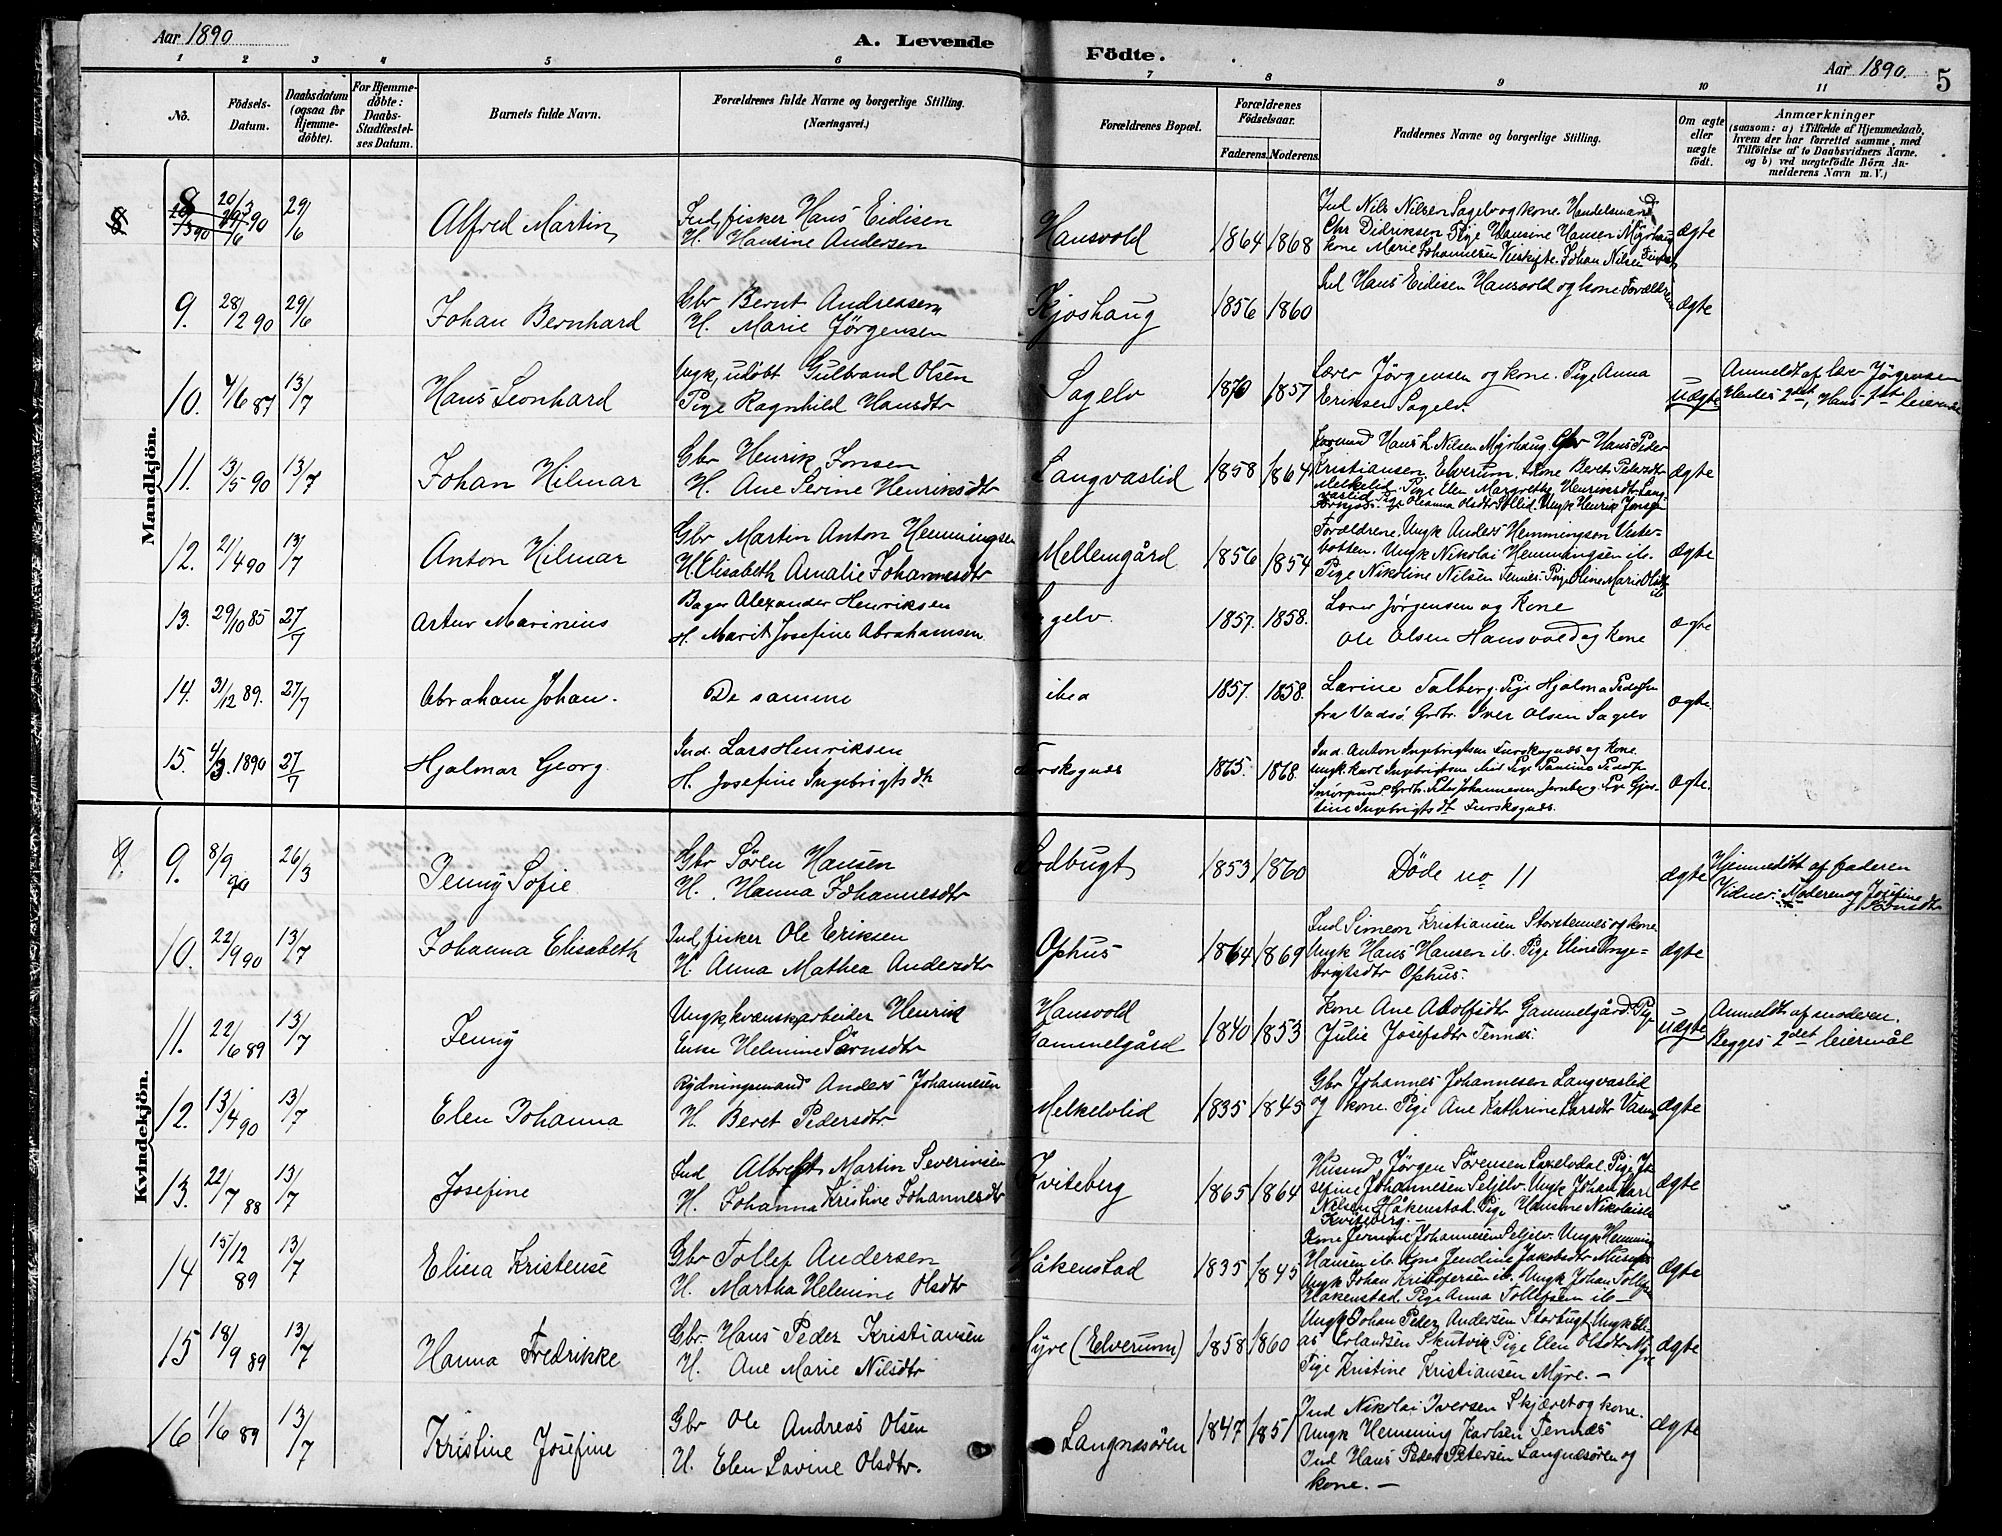 Aar 1890
A. Levende
Födte.
Aar 1890.
5
1 2 3 4 5 6 7 8 9 10 11
No.
Födsels-
Datum.
Daabsdatum
(ogsaa for
Hjemme-
döbte).
For Hjemme-
döbte:
Daabs-
Stadfæstel-
ses Datum.
Barnets fulde Navn.
Forældrenes fulde Navne og borgerlige Stilling.
(Næringsvei.)
Forældrenes Bopæl.
Forældrenes
Födselsaar.
Faderens. Moderens.
Faddernes Navne og borgerlige Stilling.
Om ægte
eller
uægte
födt.
Anmærkninger
(saasom: a) i Tilfælde af Hjemmedaab,
hvem der har forrettet samme, med
Tilföielse af to Daabsvidners Navne.
og b) ved uægtefödte Börn An-
melderens Navn m. V.)
Mandkjön.
8
20/3 90
29/6
Alfred Martin
Ind, fisker Hans Eidisen
H. Hansine Andersen
Hansvold
1864 1868
Ind Nils Nilsen Sagelv og kone. Handelsmand
Chr Didriksen Pige Hansine Hansen Mjöshaug
kone Marie Johannesen
Johan Nilsen
ægte
9. 28/2 90 29/6
Johan Bernhard
Gbr Bernt Andreasen
H. Marie Jørgensen
Kjoshaug
1856 1860
Ind Hans Eidisen Hansvold og kone Forældrene
ægte
10. 4/6 87 13/7
Hans Leonhard
Ungk, udöbt Gulbrand Olsen
Pige Ragnhild Hansdtr
Sagelv
1870 1857
Lærer Jørgensen og kone. Pige Anna
Eriksen Sagelv.
uægte
Anmeldt af lærer Jørgensen
Hendes 2det, Hans 1ste leiermål
11. 13/5 90 13/7
Johan Hilmar
Gbr Henrik Jonsen
H. Ane Serine Henriksdtr
Langvaslid
1858 1864
Hans L. Nilsen Mjöshaug. Gbr Hans Peder
Kristiansen Elverum. Kone Beret Pedersdtr
Melkelid. Pige Elen Margrethe Henriksdtr Lang-
vaslid. Pige Oleanna Olsdtr Sollid. Ungk Henrik Jonsen
ægte
12. 21/4 90 13/7
Anton Hilmar
Gbr Martin Anton Hemmingsen
H. Elisabeth Amalie Johannesdtr
Mellemgård
1856 1854
Forældrene. Ungk Anders Hemmingsen Vester-
botten. Ungk Nikolai Hemmingsen ib.
Pige Nikoline Nilsen Tennes. Pige Oline Marie Olsdtr
ib
ægte
13. 29/10 85 27/7
Artur Marinius
Bager Alexander Henriksen
H. Marit Josefine Abrahamsen
gelv
1857. 1858.
Lærer Jørgensen og Kone
Ole Olsen Hansvold og Kone
ægte
14. 31/12 89. 27/7
Abraham Johan.
De samme
ibid
1857. 1858.
Lavine Talberg. Pige Hjalma Pedersen
fra Vadsö. Grdbr. Iver Olsen Sagelv
ægte.
15. 4/3. 1890 27/7
Hjalmar Georg.
Ind. Lars Henriksen
H. Josefine Ingebrigtsdtr
rskognæs
1865. 1868.
Ind. Anton Ingebrigtsen Furskognæs og Kone.
Ungk. Karl Ingebrigtsen
Pige Pauline Peders
Grdbr. Peder Johannesen
tine Ingebrigtsdtr Furskognæs.
ægte.
Kvindekjön.
9. 9. 8/9 90 26/3
Jenny Sofie
Gbr Søren Hansen
H. Hanna Johannesdtr
odbugt
1853 1860
Döde no 11
ægte
Hjemmedöbt af faderen
Vidner: Moderen og Josefine
10. 22/9 90 13/7
Johanna Elisabeth
Ind, fisker Ole Eriksen
H. Anna Mathea Andersdtr
Ophus
1864 1869
Ind Simeon Kristiansen Storstennes og kone.
Ungk Hans Hansen ib. Pige Eline Inge-
brigtsdtr Ophus.
ægte
11. 22/6 89 13/7
Jenny
Ungk, kvænsk arbeider Henrik
Enke Helmine Sørnsdtr
Hansvold
Gammelgård
1840 1853
Kone Ane Adolfsdtr Gammelgård. Pige
Julie Josefsdtr Tennes.
uægte
Anmeldt af moderen.
Begges 2det leiermål
12. 13/4 90 13/7
Elen Johanna
Rydningsmand Anders Johannesen
H. Beret Pedersdtr
Melkelvlid
1835 1845
Gbr Johannes Johannesen Langvaslid
og kone. Pige Ane Kathrine Larsdtr
ægte
13. 22/7 88 13/7
Josefine
Ind Albrekt Martin Severinsen
H. Johanna Kristine Johannesdtr
Kviteberg
1865 1864
Husmd Jørgen Sørensen Laxelvdal. Pige Jo-
sefine Johannesen Seljelv. Ungk Johan Karl
Nilsen Håkenstad. Pige Hansine Nikolaisen
Kviteberg. —
ægte
14 15/12 89 13/7
Elina Kristense
Gbr Tollef Andersen
H. Martha Helmine Olsdtr
Håkenstad
1835 1845
Kone Johannesen Seljelv. Ungk Hemming
Hansen ib. Kone Jendine Jakobsdtr
Ungk Johan Kristofersen ib. Ungk Johan Tollefsen
Håkenstad. Pige Anna Tollefsen ib —
ægte
15 18/9 89 13/7
Hanna Fredrikke
Gbr Hans Peder Kristiansen
H. Ane Marie Nilsdtr
Myre (Elverum)
1858 1860
Ungk Johan Peder Andersen Storbugt. Ungk Eli-
as Erlandsen Skutvik. Pige Elen Olsdtr Myre
Pige Kristine Kristiansen Myre. —
ægte
16 1/6 89 13/7
Kristine Josefine
Gbr Ole Andreas Olsen
H. Elen Lavine Olsdtr.
Langnæsören
1847 1851
Ind Nikolai Iversen Skjæret og kone.
Ungk Hemming Karlsen Tennæs
Ind Hans Peder Petersen Langnæsören og
kone. —
ægte